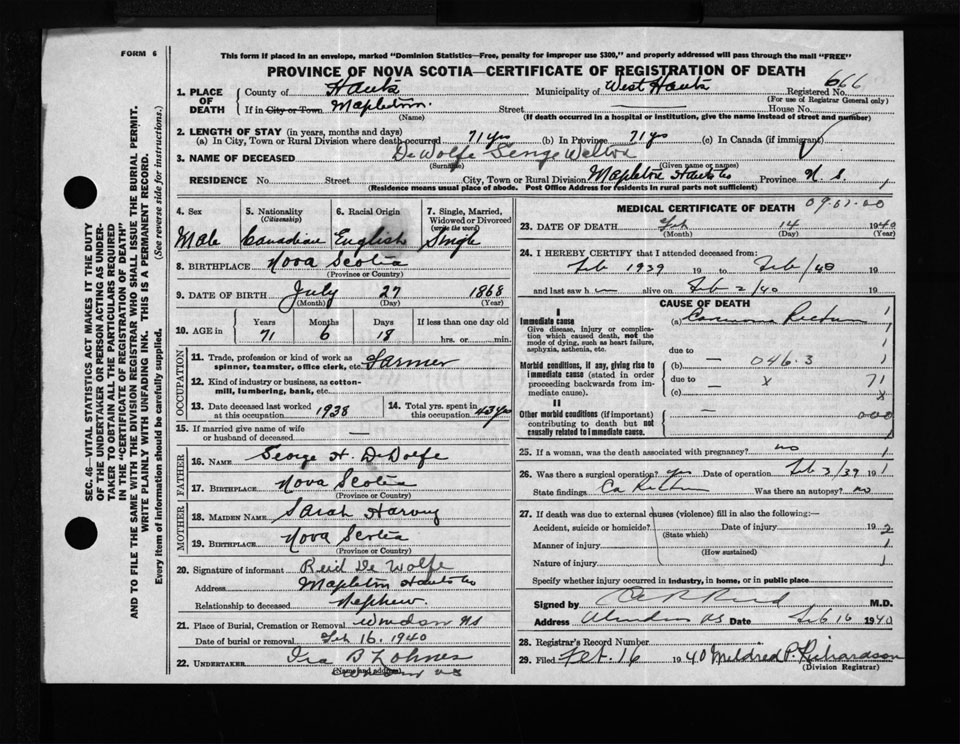 FORM 6
This form if placed in an envelope, marked "Dominion Statistics—Free, penalty for improper use $300," and properly addressed will pass through the mail "FREE"
PROVINCE OF NOVA SCOTIA—CERTIFICATE OF REGISTRATION OF DEATH
666
1. PLACE OF DEATH
County of Hants Municipality of West Hants Registered No.
(For use of Registrar General only)
If in City or Town Mapleton Street House No.
(Name) (If death occurred in a hospital or institution, give the name instead of street and number)
2. LENGTH OF STAY (in years, months and days)
(a) In City, Town or Rural Division where death occurred 71 yrs (b) In Province 71 ys (c) In Canada (if immigrant)
3. NAME OF DECEASED De Wolfe
(Surname) (Given name or names)
RESIDENCE No. Street City, Town or Rural Division Mapleton Hants Co Province N. S.
(Residence means usual place of abode. Post Office Address for residents in rural parts not sufficient)
4. Sex
Male
5. Nationality (Citizenship)
Canadian
6. Racial Origin
English
7. Single, Married, Widowed or Divorced (write the word)
Single
8. BIRTHPLACE Nova Scotia
(Province or Country)
9. DATE OF BIRTH July 27 1868
(Month) (Day) (Year)
10. AGE in Years Months Days If less than one day old
71 6 18 hrs. or min.
OCCUPATION
11. Trade, profession or kind of work as spinner, teamster, office clerk, etc. Farmer
12. Kind of industry or business, as cotton-mill, lumbering, bank, etc.
13. Date deceased last worked at this occupation 1938
14. Total yrs. spent in this occupation
15. If married give name of wife or husband of deceased —
FATHER
16. NAME George H. DeWolfe
17. BIRTHPLACE Nova Scotia
(Province or Country)
MOTHER
18. MAIDEN NAME Sarah Harvey
19. BIRTHPLACE Nova Scotia
(Province or Country)
20. Signature of informant Reid De Wolfe
Address Mapleton Hants Co
Relationship to deceased Nephew.
21. Place of Burial, Cremation or Removal Windsor NS
Date of burial or removal Feb 16. 1940
22. UNDERTAKER Ira B
(Name and address)
MEDICAL CERTIFICATE OF DEATH
23. DATE OF DEATH Feb 14 1940
(Month) (Day) (Year)
24. I HEREBY CERTIFY that I attended deceased from:
Feb 1939 19 to Feb /40 19
and last saw h alive on Feb 2/40 19
CAUSE OF DEATH
I
Immediate cause
Give disease, injury or complication which caused death, not the mode of dying, such as heart failure, asphyxia, asthenia, etc.
(a) Carcinoma Rectum
due to
Morbid conditions, if any, giving rise to immediate cause (stated in order proceeding backwards from immediate cause).
(b) — 046.3
due to — x 71
(c)
II
Other morbid conditions (if important) contributing to death but not causally related to immediate cause.
—
000
25. If a woman, was the death associated with pregnancy? no
26. Was there a surgical operation? yes Date of operation Feb 3/39 19
State findings Ca Rectum Was there an autopsy? no
27. If death was due to external causes (violence) fill in also the following:—
Accident, suicide or homicide? Date of injury 19 2
(State which)
Manner of injury 1
(How sustained)
Nature of injury 1
Specify whether injury occurred in industry, in home, or in public place
Signed by M.D.
Address Date Feb 16 1940
28. Registrar's Record Number
29. Filed Feb. 16 1940 Mildred P. Richardson
(Division Registrar)
SEC. 46—VITAL STATISTICS ACT MAKES IT THE DUTY
OF THE UNDERTAKER OR PERSON ACTING AS UNDER-
TAKER TO OBTAIN ALL THE PARTICULARS REQUIRED
IN THE "CERTIFICATE OF REGISTRATION OF DEATH"
AND TO FILE THE SAME WITH THE DIVISION REGISTRAR WHO SHALL ISSUE THE BURIAL PERMIT.
WRITE PLAINLY WITH UNFADING INK. THIS IS A PERMANENT RECORD.
Every item of information should be carefully supplied. (See reverse side for instructions.)